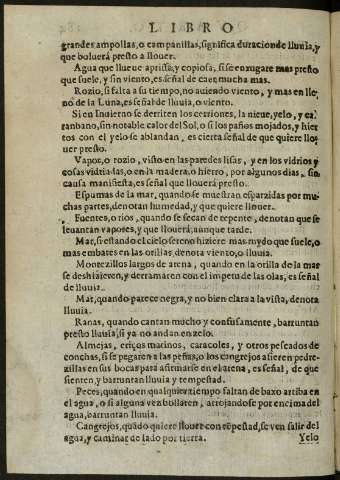 LIBRO
grandes ampollas, o campanillas, significa duracion de lluuia, y
que boluerá presto a llouer.
Agua que llueue aprissa, y copiosa, si se enxugare mas presto
que suele, y sin viento, es señal de caer mucha mas.
Rozio, si falta a su tiempo, no auiendo viento, y mas en lle
no de la Luna, es señal de lluuia, o viento.
Si en Inuierno se derriten los cerriones, la nieue, yelo, y ca
ranbano, sin notable calor del Sol, o si los paños mojados, y hier
tos con el yelo se ablandan, es cierta señal de que quiere llo-
uer presto.
Vapor, o rozio, visto en las paredes lisas, y en los vidrios y
cosas vidriadas, o en la madera, o hierro, por algunos dias, sin
causa manifiesta, es señal que llouerá presto.
Espumas de la mar, quando se muestran esparzidas por mu
chas partes, denotan humedad, y que quiere llouer.
Fuentes, o rios, quando se secan de repente, denotan que se
leuantan vapores, y que llouerá, aunque tarde.
Mar, si estando el cielo sereno hiziere mas ruydo que suele, o
mas embates en las orillas, denota viento, o lluuia.
Montezillos largos de arena, quando en la orilla de la mar
se deshizieren, y derramaren con el impetu de las olas, es señal
de lluuia.
Mar, quando parece negra, y no bien clara a la vista, denota
lluuia.
Ranas, quando cantan mucho y confusamente, barruntan
presto lluuia, si ya no andan en zelo.
Almejas, eriços marinos, caracoles, y otros pescados de
conchas, si se pegaren a las peñas, o los cangrejos asieren pedre-
zillas en sus bocas para afirmarse en el arena, es señal, de que
sienten, y barruntan lluuia y tempestad.
Peces, quando en qualquier tiempo saltan de baxo arriba en
el agua, o si alguna vez bollaren, arrojandose por encima del
agua, barruntan lluuia.
Cangrejos, quãdo quiere llouer con tẽpestad, se ven salir del
agua, y caminar de lado por tierra. Yelo